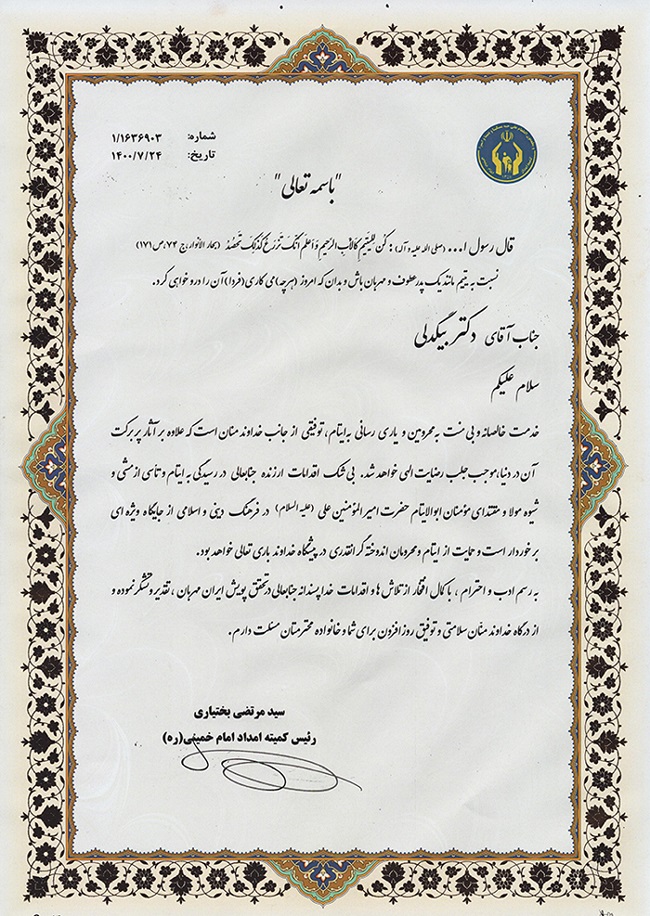 شماره: ۱/۱۶۳۶۹۰۳
تاریخ: ۱۴۰۰/۷/۲۴
"باسمه تعالی"
قال رسول ا... (صلی الله علیه و آله): کُن لِلیَتیمِ کَالأَبِ الرَّحیمِ وَ اعلَم اَنَّکَ تَزرَعُ کَذلِکَ تَحصُدُ (بحار الانوار، ج ۷۴، ص ۱۷۱)
نسبت به یتیم مانند یک پدر عطوف و مهربان باش و بدان که امروز (هرچه) می کاری (فردا) آن را درو خواهی کرد.
جناب آقای دکتر بیگدلی
سلام علیکم
خدمت خالصانه و بی منت به محرومین و یاری رسانی به ایتام، توفیقی از جانب خداوند منان است که علاوه بر آثار پر برکت
آن در دنیا، موجب جلب رضایت الهی خواهد شد. بی شک اقدامات ارزنده جنابعالی در رسیدگی به ایتام و تاسی از مشی و
شیوه مولا و مقتدای مؤمنان ابوالایتام حضرت امیرالمؤمنین علی (علیه السلام) در فرهنگ دینی و اسلامی از جایگاه ویژه ای
برخوردار است و حمایت از ایتام و محرومان اندوخته گرانقدری در پیشگاه خداوند باری تعالی خواهد بود.
به رسم ادب و احترام، با کمال افتخار از تلاش ها و اقدامات خداپسندانه جنابعالی در تحقق پویش ایران مهربان، تقدیر و تشکر نموده و
از درگاه خداوند منان سلامتی و توفیق روز افزون برای شما و خانواده محترمتان مسئلت دارم.
سید مرتضی بختیاری
رئیس کمیته امداد امام خمینی(ره)